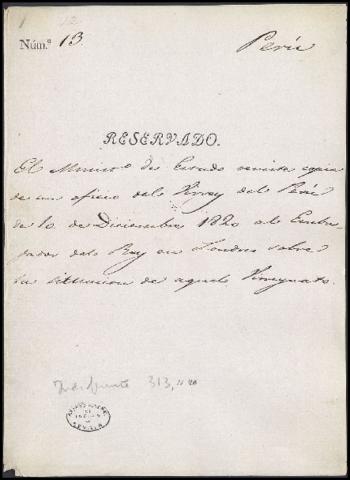 Núm.º 13.
Perú
RESERVADO.
El Ministº de Estado remite copia
de un oficio del Virey del Perú
de 10 de Diciembre 1820 al Emba-
jador del Rey en Londres sobre
la situacion de aquel Vireynato.
Indiferente 313, n 20
ARCHIVO GENERAL
DE
INDIAS
SEVILLA